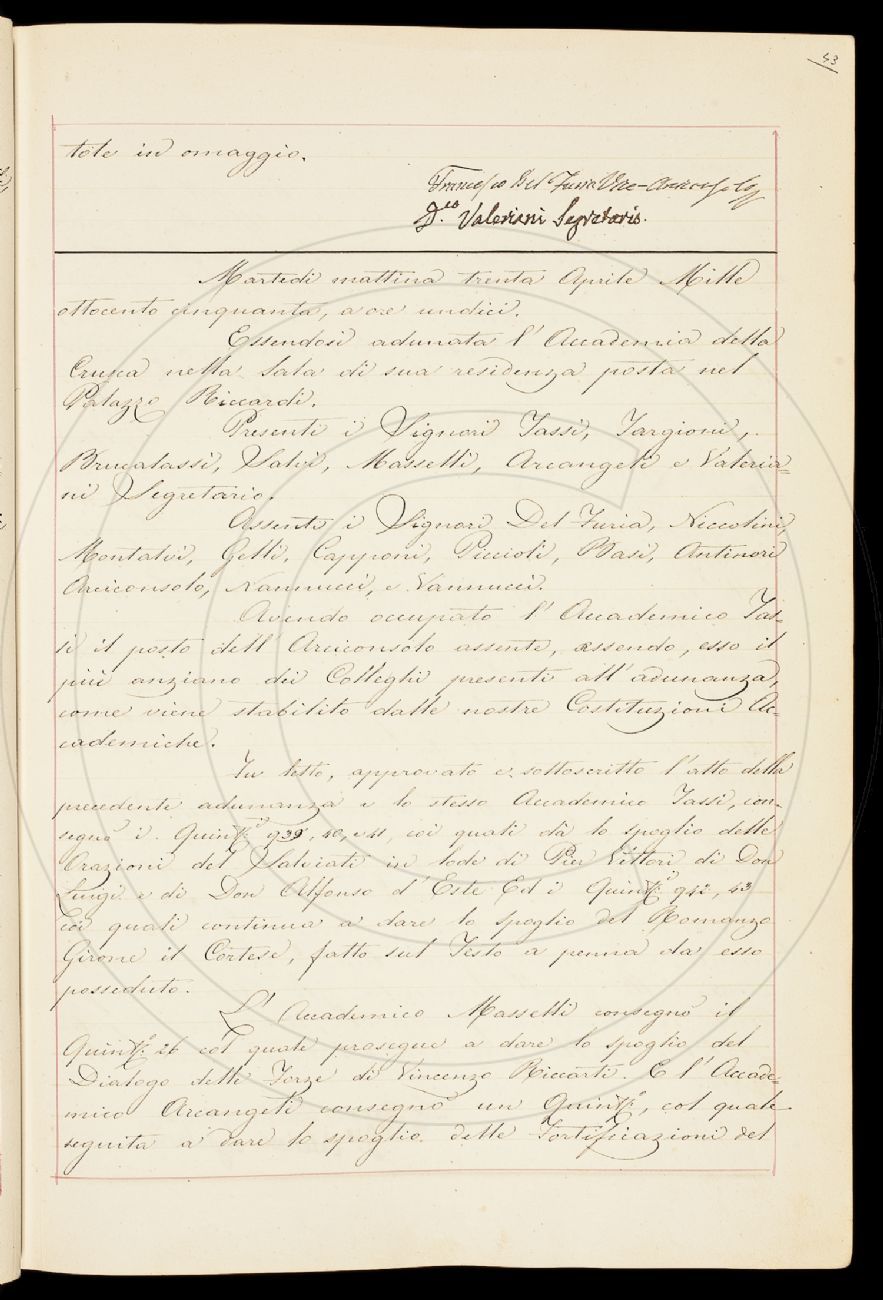 43
tole in omaggio.
Francesco Del Furia Vice-Arciconsolo
D.co Valeriani Segretario.
Martedì mattina trenta Aprile Mille
ottocento cinquanta, a ore undici.
Essendosi adunata l'Accademia della
Crusca nella Sala di sua residenza posta nel
Palazzo Riccardi.
Presenti i Signori Tassi, Targioni,
Brucalassi, Salvi, Masselli, Arcangeli e Valeria=
ni Segretario.
Assenti i Signori Del Furia, Niccolini,
Montalvi, Gelli, Capponi, Piccioli, Basi, Antinori
Arciconsolo, Nannucci, e Vannucci.
Avendo occupato l'Accademico Tas-
si il posto dell'Arciconsolo assente, essendo, esso il
più anziano dei Colleghi presenti all'adunanza,
come viene stabilito dalle nostre Costituzioni Ac-
cademiche.
Fu letto, approvato e sottoscritto l'atto della
precedente adunanza e lo stesso Accademico Tassi, con-
segnò i Quint.i 939, 40, e 41, coi quali dà lo spoglio delle
Orazioni del Salviati in lode di Pier Vittori di Don
Luigi e di Don Alfonso d'Este Ed i Quint.i 942, 43
coi quali continua a dare lo spoglio del Romanzo
Girone il Cortese, fatto sul Testo a penna da esso
posseduto.
L'Accademico Masselli consegnò il
Quint.o 26 col quale prosegue a dare lo spoglio del
Dialogo delle Forze di Vincenzo Riccardi. E l'Accade=
mico Arcangeli consegnò un Quint.o, col quale
seguita a dare lo spoglio delle Fortificazioni del